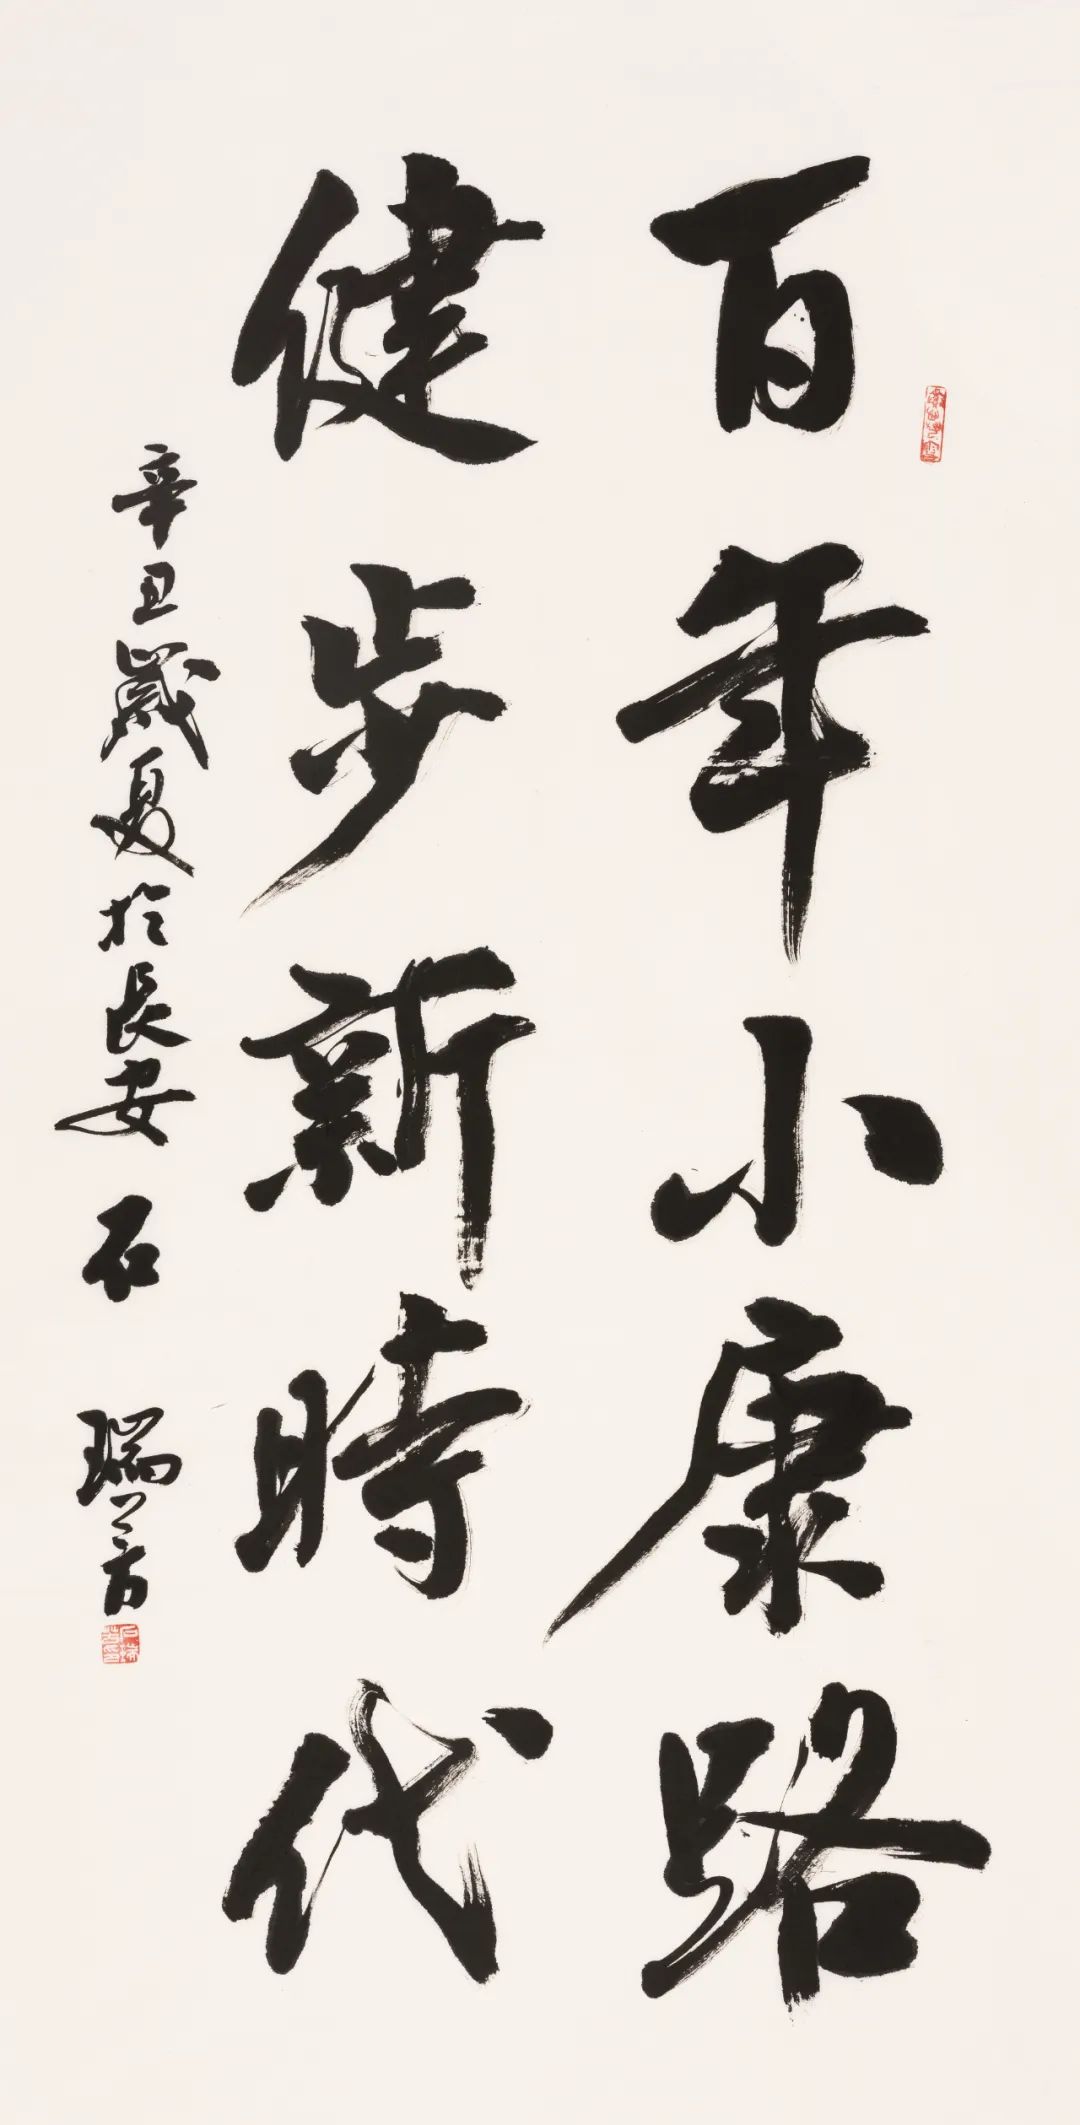 百年小康路
健步新時代
辛丑歲夏於長安 石瑞芳